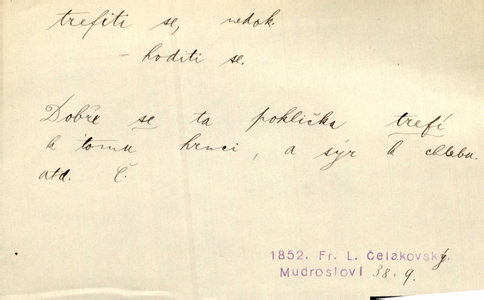 trefiti se, nedok.
– hoditi se.
Dobře se ta poklička trefí
k tomu hrnci, a sýr k chlebu.
atd. Č.
1852. Fr. L. Čelakovský
Mudrosloví 38. 9.